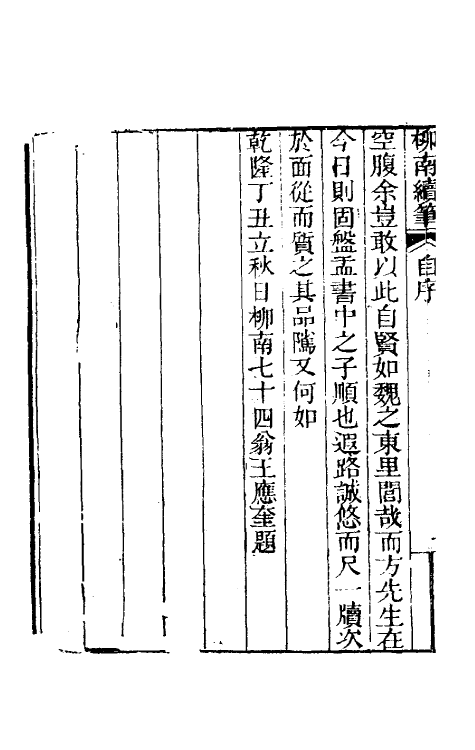 柳南續筆 自序
空腹余豈敢以此自賢如魏之東里閭哉而方先生在
今日則固盤盂書中之子順也遐路誠悠而尺一牘次
於面從而質之其品隲又何如
乾隆丁丑立秋日柳南七十四翁王應奎題